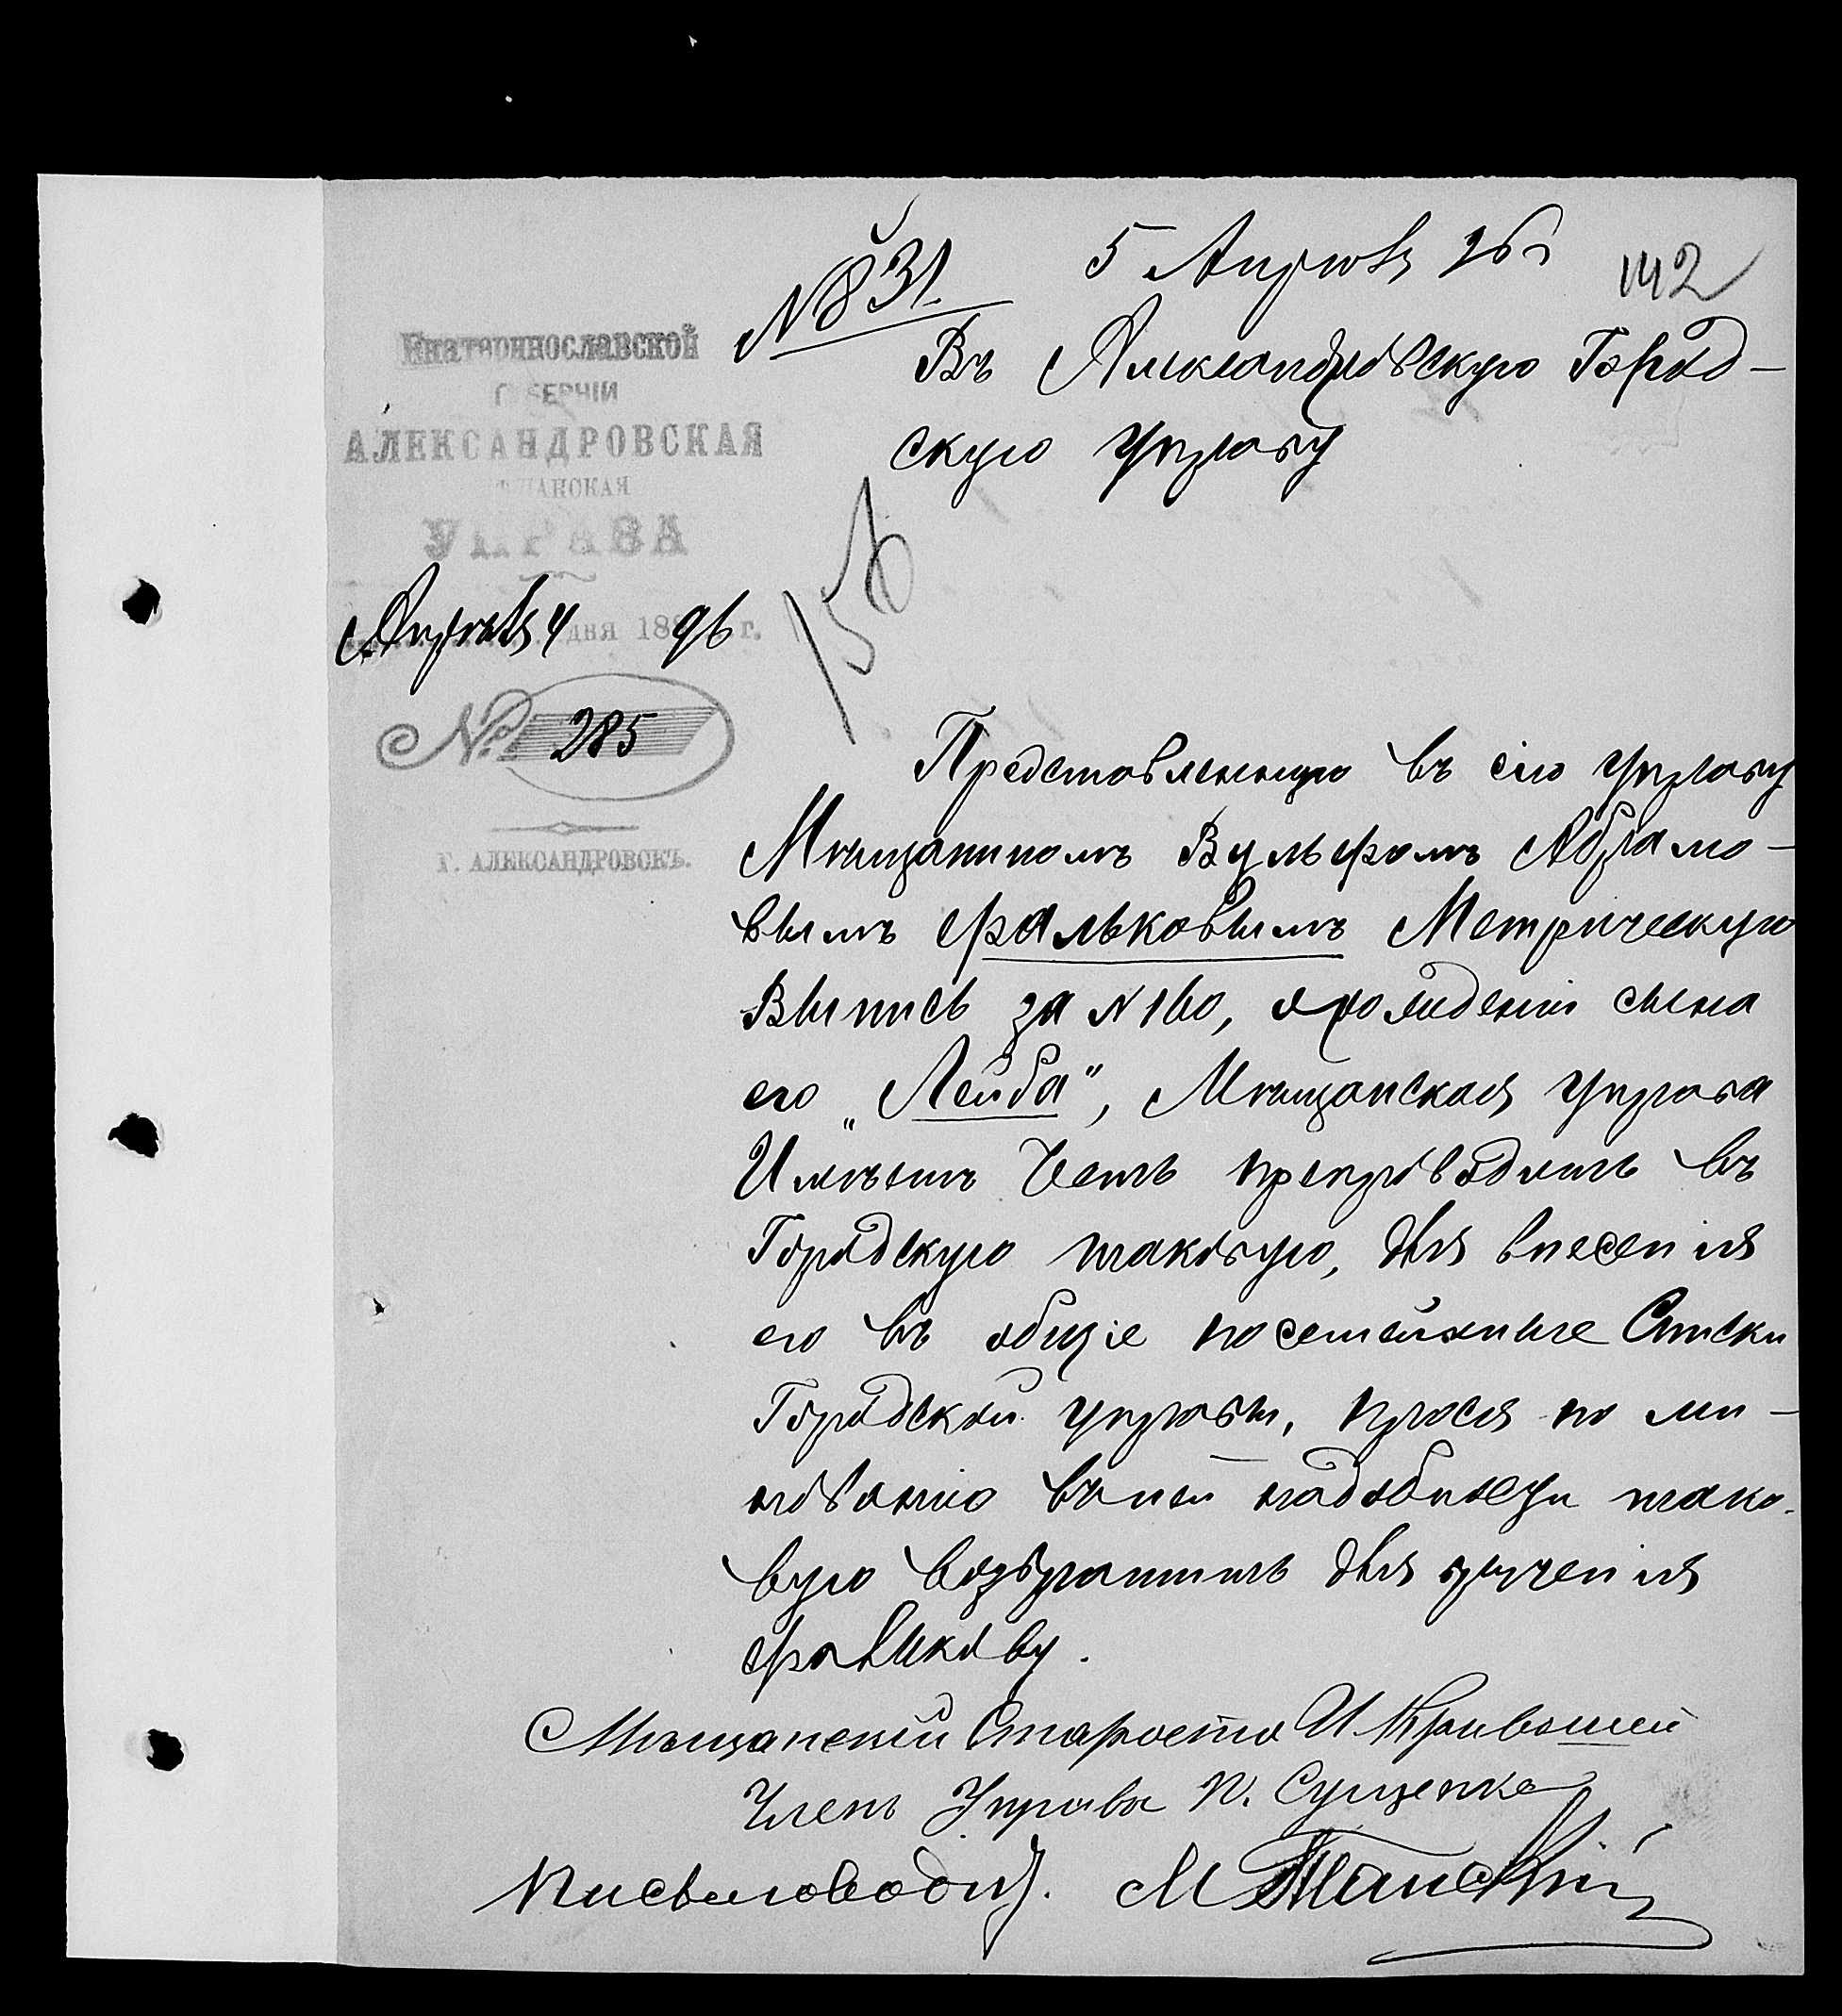 № 831.
5 Апреля 96 г
142
Екатеринославской
ГУБЕРНІИ
АЛЕКСАНДРОВСКАЯ
МѢЩАНСКАЯ
УПРАВА
Апреля 4 дня 1896 г.
№ 285
Г. АЛЕКСАНДРОВСКЪ.
Въ Александровскую Город-
скую Управу
Представленную въ сію Управу
Мѣщаниномъ Вульфомъ Абрамо-
вымъ Фальковымъ Метрическую
Выпись за № 160, о рожденіи сына
его „Лейба", Мѣщанская Управа
Имѣетъ Честь препроводить въ
Городскую таковую, для внесенія
его въ общіе посемейные Списки
Городской Управы, прося по ми-
нованію въ ней надобности тако-
вую возвратить для врученія
Фалькову.
Мѣщанскій Староста И Кривошей
Членъ Управы П. Сущенко
Письмоводит.